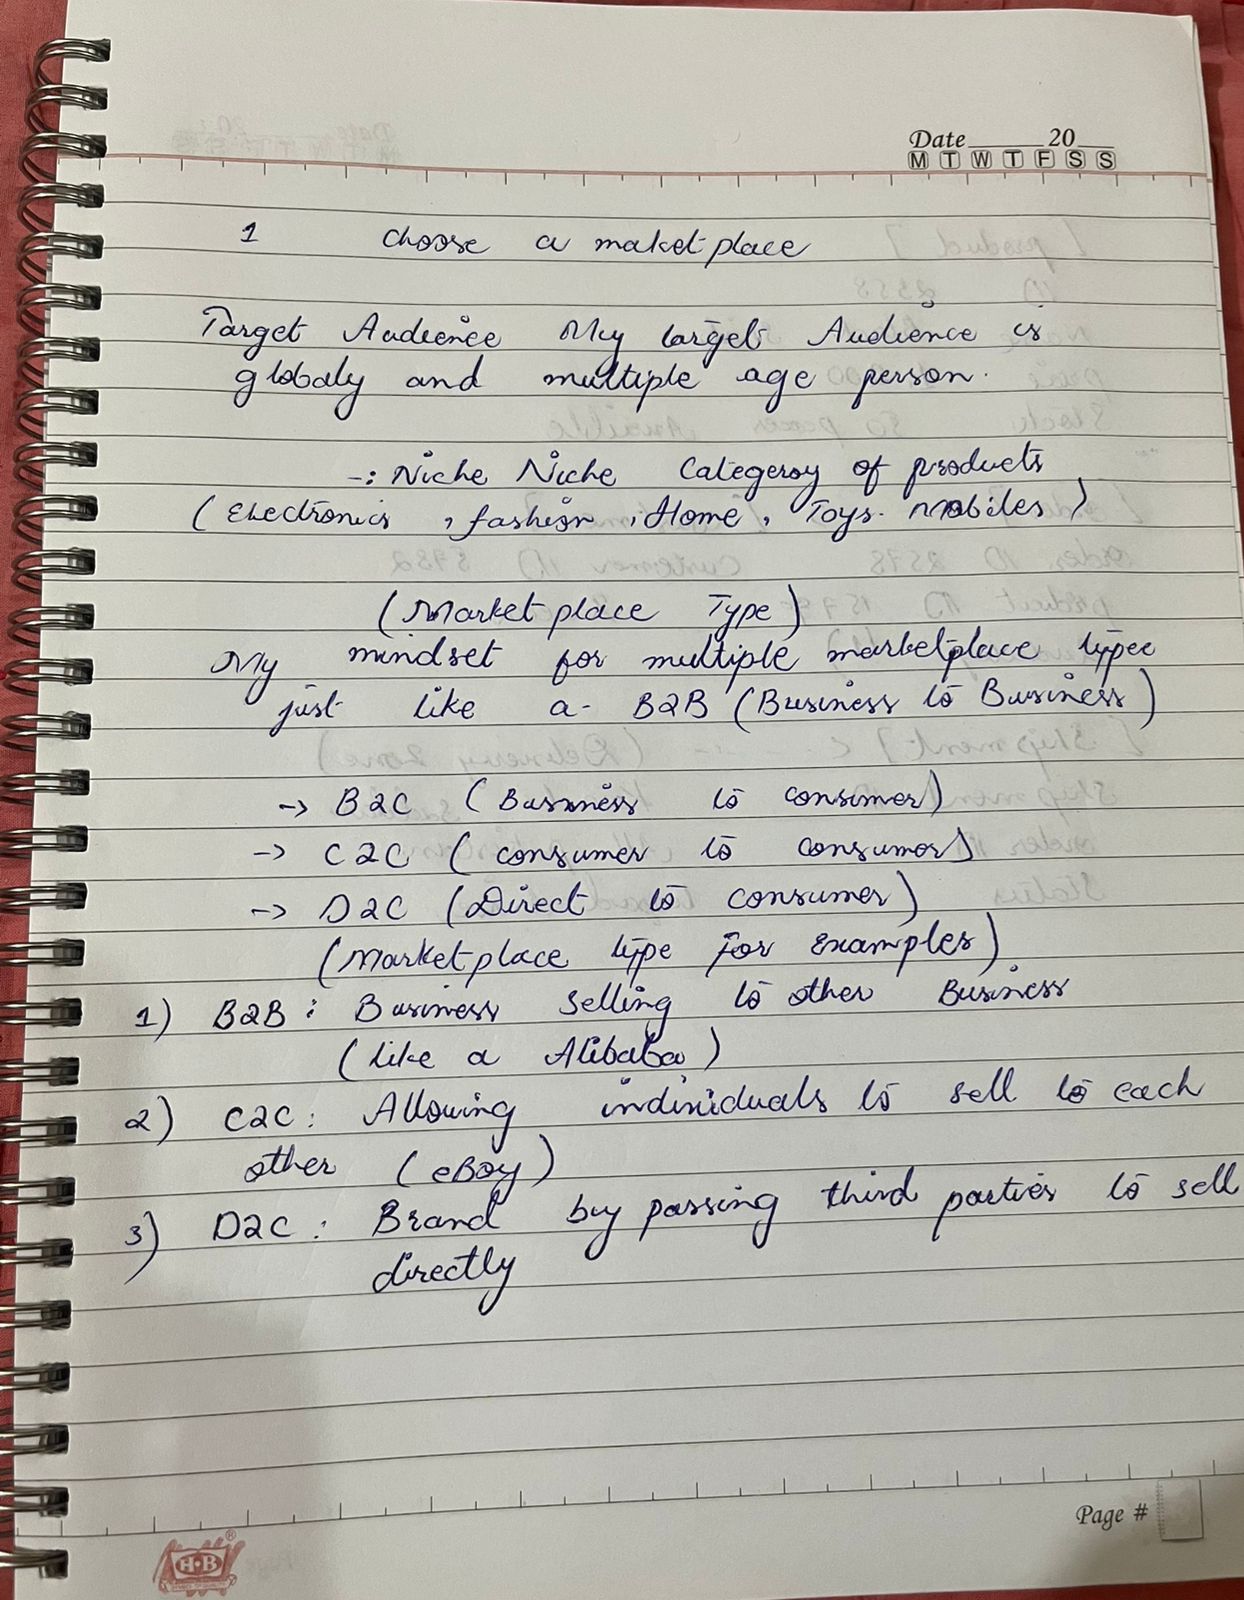 Date 20
M T W T F S S
1 choose a maket place
Target Audience My target Audience is
globaly and multiple age person.
-: Niche Niche Categeroy of products
(Electronics , fashion , Home , Toys. mobiles)
(Market place Type)
My mindset for multiple marketplace typee
just like a - B2B (Business to Business)
-> B2C (Business to consumer)
-> C2C (consumer to consumer)
-> D2C (Direct to consumer)
(Market place type for examples)
1) B2B : Business selling to other Business
(like a Alibaba)
2) C2C : Allowing individuals to sell to each
other (eBay)
3) D2C : Brand by passing third parties to sell
directly
Page #
H•B
®